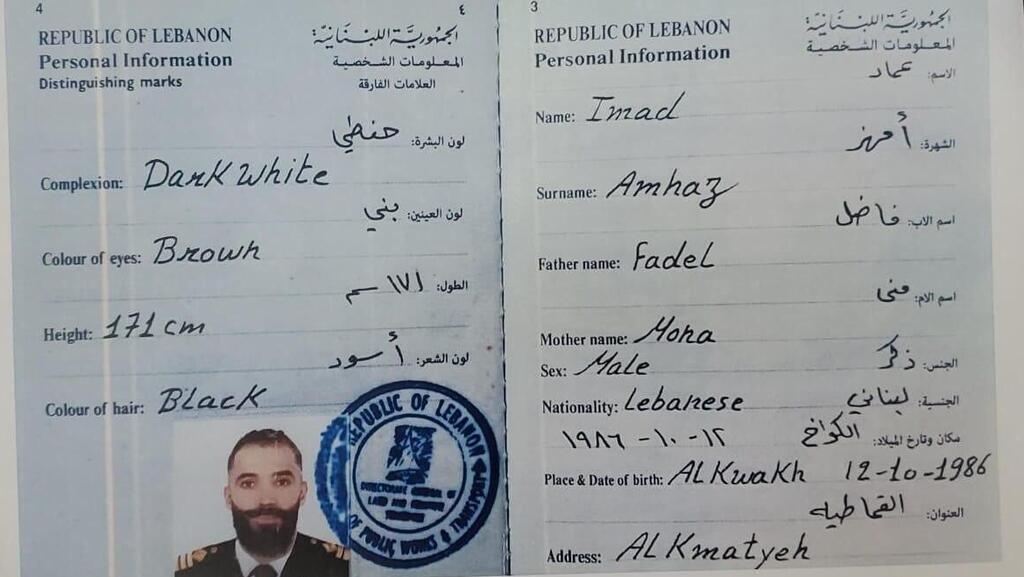 4
٤
REPUBLIC OF LEBANON
الجمهوريّة اللبنانيّة
Personal Information
المعلومات الشخصية
Distinguishing marks
العلامات الفارقة
لون البشرة: حنطي
Complexion: Dark White
لون العينين: بني
Colour of eyes: Brown
الطول: ١٧١ سم
Height: 171 cm
لون الشعر: أسود
Colour of hair: Black
REPUBLIC OF LEBANON
OF PUBLIC WORKS & TRANSPORT
3
REPUBLIC OF LEBANON
الجمهوريّة اللبنانيّة
Personal Information
المعلومات الشخصية
الاسم: عماد
Name: Imad
الشهرة: أمهز
Surname: Amhaz
اسم الاب: فاضل
Father name: Fadel
اسم الام: منى
Mother name: Mona
الجنس: ذكر
Sex: Male
الجنسية: لبناني
Nationality: Lebanese
مكان وتارخ الميلاد: الكواخ ١٢-١٠-١٩٨٦
Place & Date of birth: AL Kwakh 12-10-1986
العنوان: القماطيه
Address: AL Kmatyeh